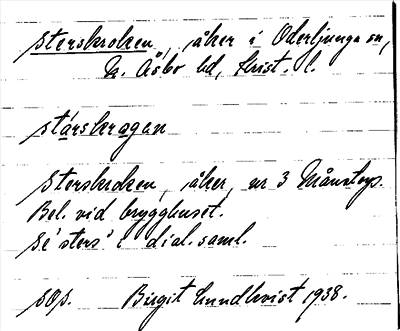 sterskroken, åker i Oderljunga sn,
N. Åsbo hd, Krist. l.
stárskragan
Sterskroken, åker, nr 3 Månstorp.
Bel. vid brygghuset.
Se 'sters' i dial.saml.
sop. Birgit Lundkvist 1938.